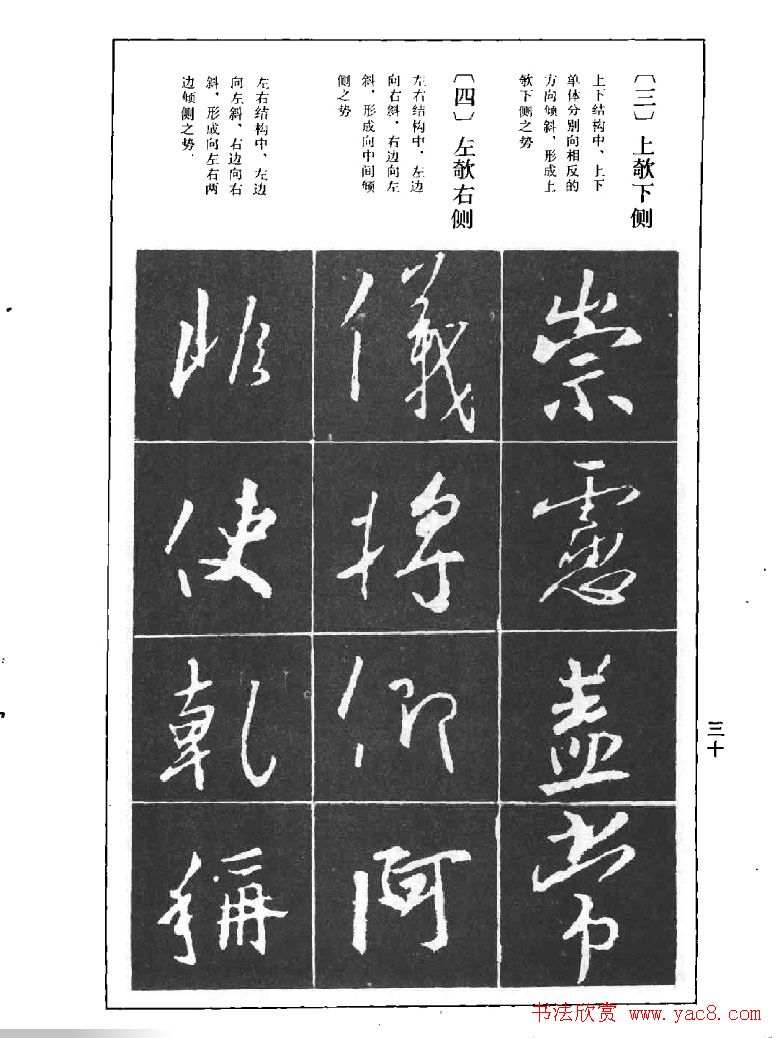 〔三〕上欹下侧
上下结构中、上下
单体分别向相反的
方向倾斜，形成上
欹下侧之势
〔四〕左欹右侧
左右结构中、左边
向右斜，右边向左
斜，形成向中间倾
侧之势
左右结构中、左边
向左斜，右边向右
斜，形成向左右两
边倾侧之势．
崇
盖
常
儀
将
仰
阿
使
乾
稱
三十
书法欣赏 www.yac8.com